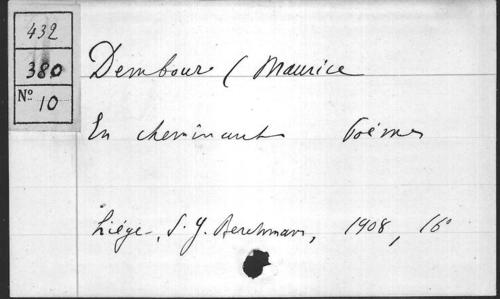 432
380
Nº 10
Dembour (Maurice
En cheminant Poémes
Liége, S. J. Berchmans, 1908, 16º